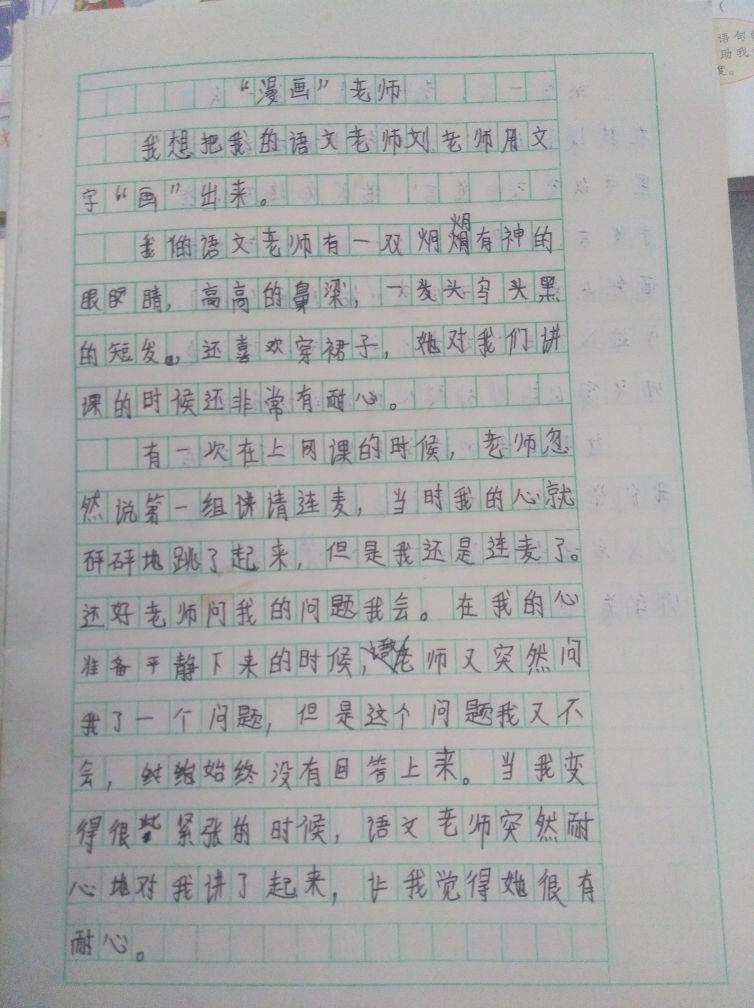 “漫画”老师
我想把我的语文老师刘老师用文
字“画”出来。
我的语文老师有一双炯炯有神的
眼睛，高高的鼻梁，一头乌黑
的短发，还喜欢穿裙子，她对我们讲
课的时候还非常有耐心。
有一次在上网课的时候，老师忽
然说第一组请连麦，当时我的心就
砰砰地跳了起来，但是我还是连麦了。
还好老师问我的问题我会。在我的心
准备平静下来的时候，老师又突然问
我了一个问题，但是这个问题我又不
会，始终没有回答上来。当我变
得很紧张的时候，语文老师突然耐
心地对我讲了起来，让我觉得她很有
耐心。